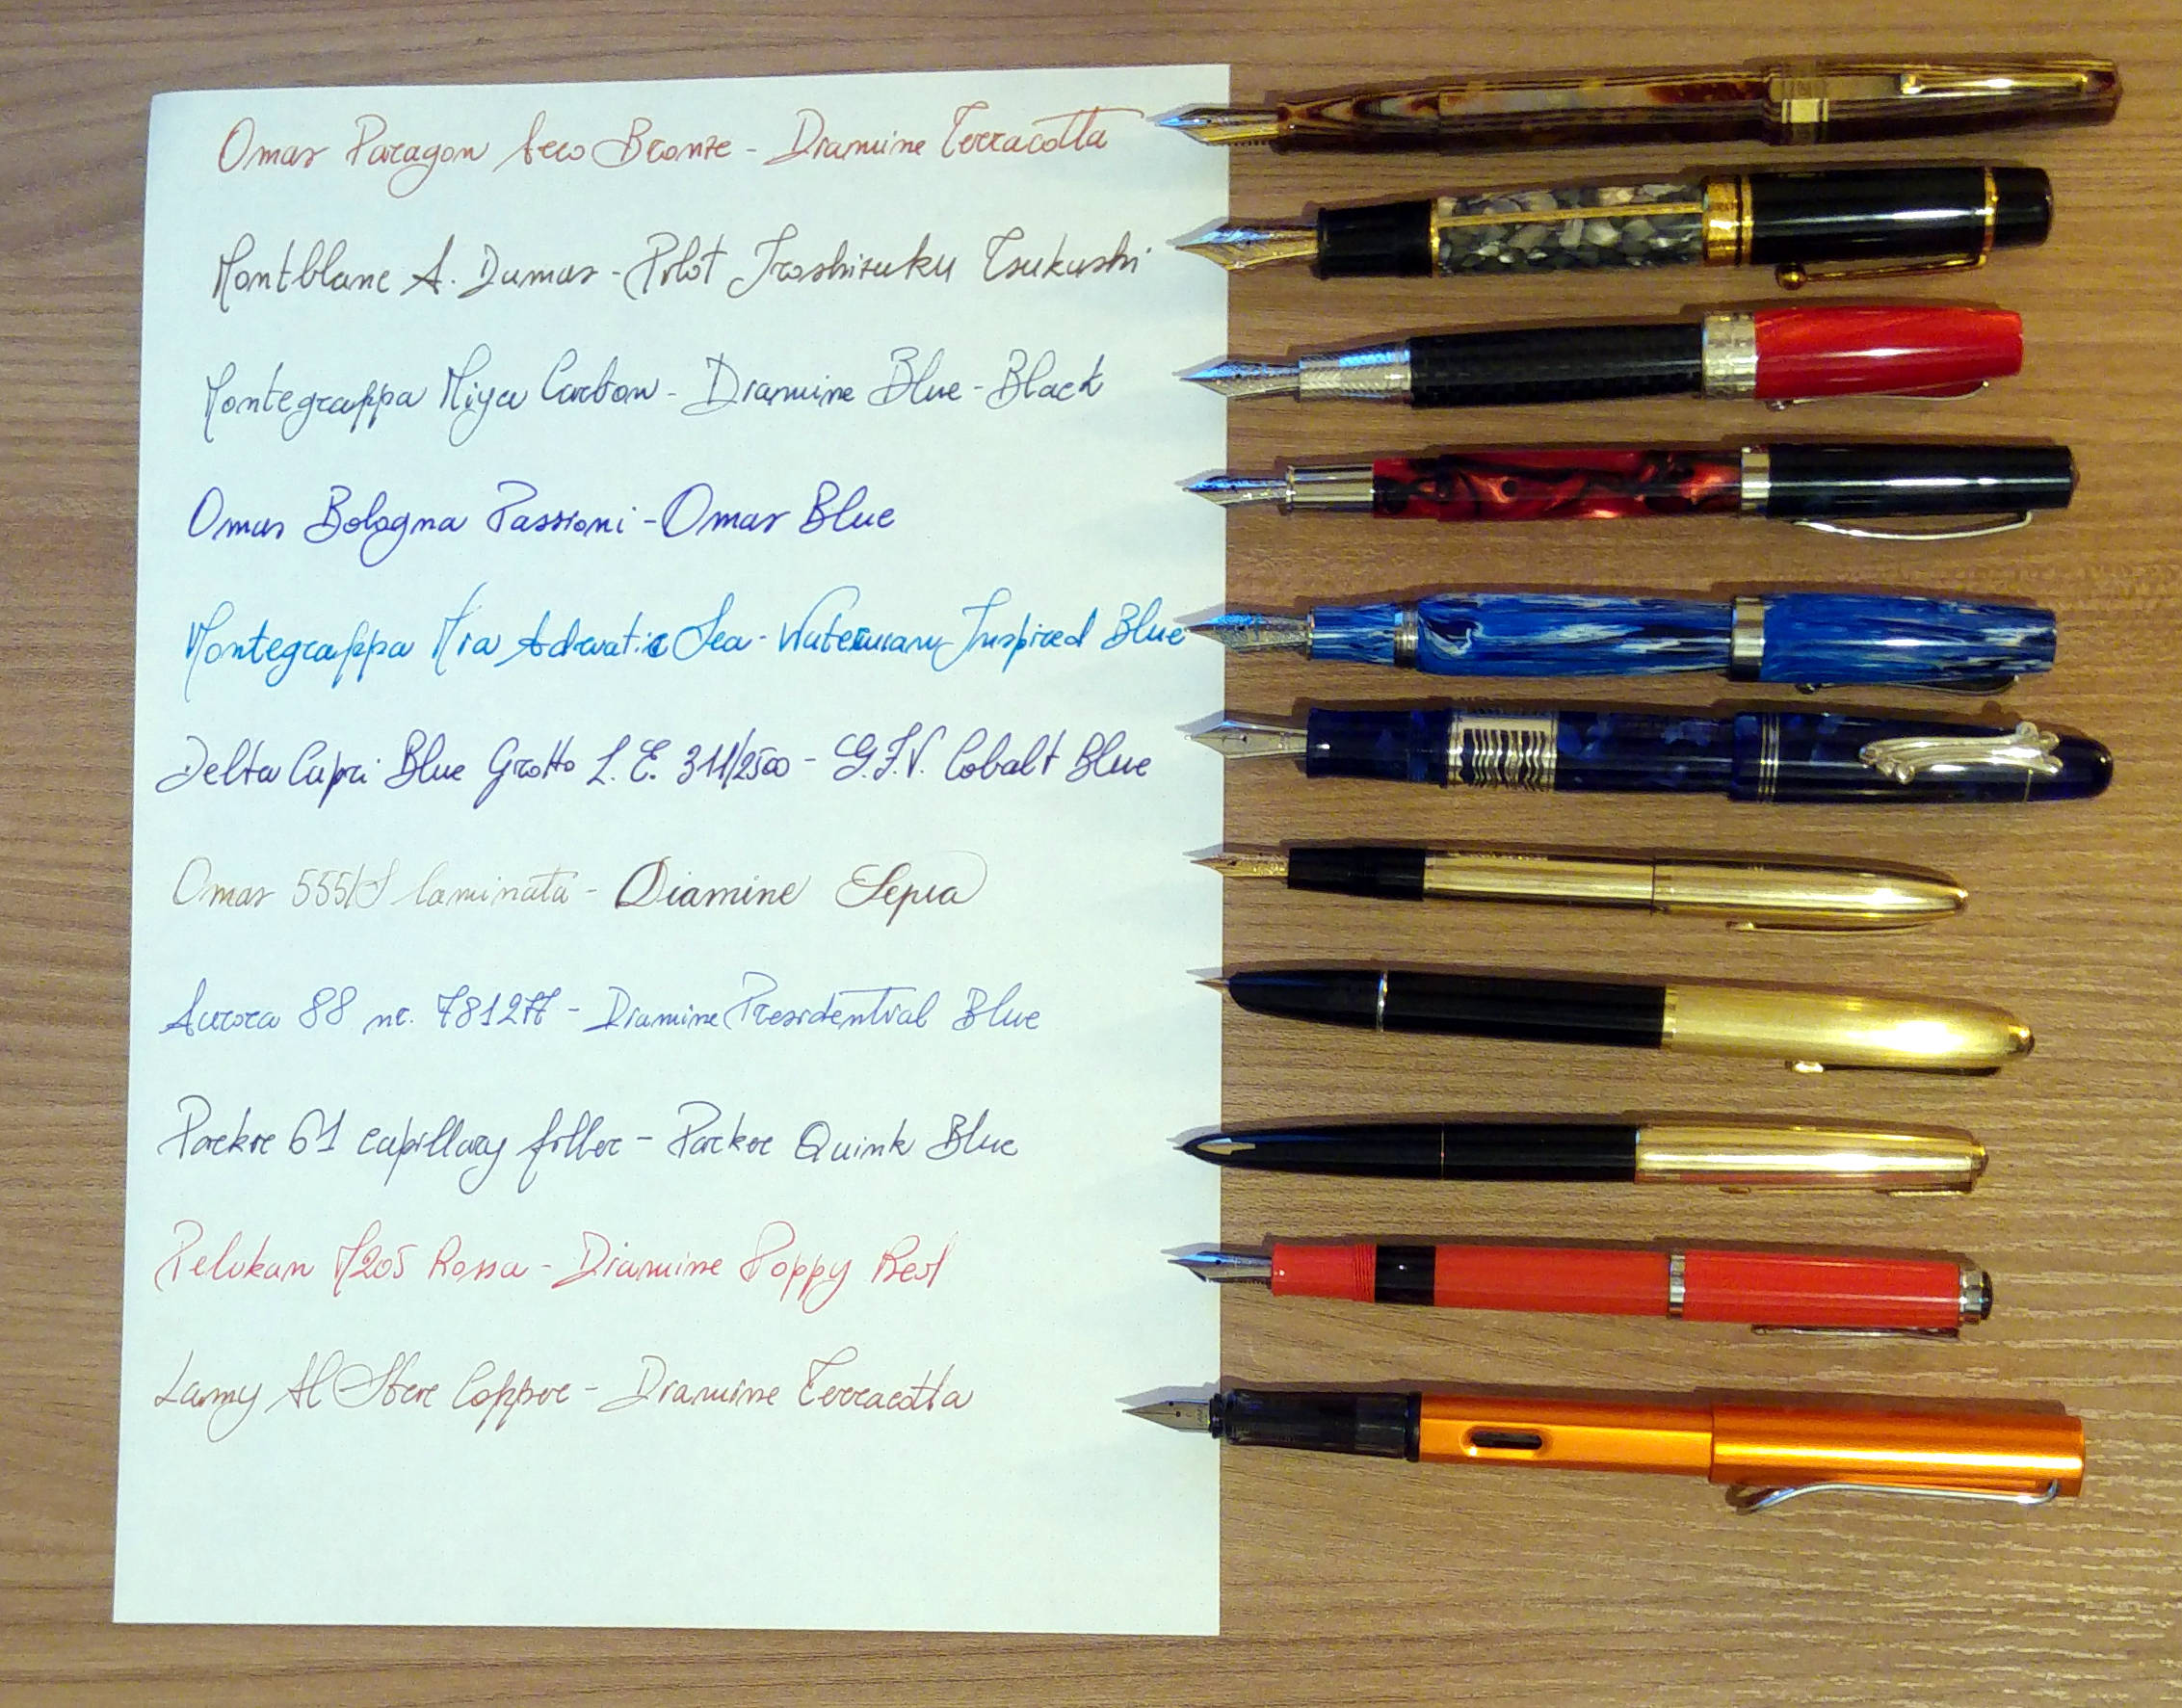 Omas Paragon Arco Bronze - Diamine Terracotta
Montblanc A. Dumas - Pilot Iroshizuku Tsukushi
Montegrappa Miya Carbon - Diamine Blue-Black
Omas Bologna Passioni - Omas Blue
Montegrappa Mia Adriatic Sea - Waterman Inspired Blue
Delta Capri Blue Grotto L.E. 311/2500 - G.F.V. Cobalt Blue
Omas 555/S laminata - Diamine Sepia
Aurora 88 nr. Diamine Presidential Blue
Parker 61 capillary filler - Parker Quink Blue
Pelikan M205 Rossa - Diamine Poppy Red
Lamy Al Star Copper - Diamine Terracotta